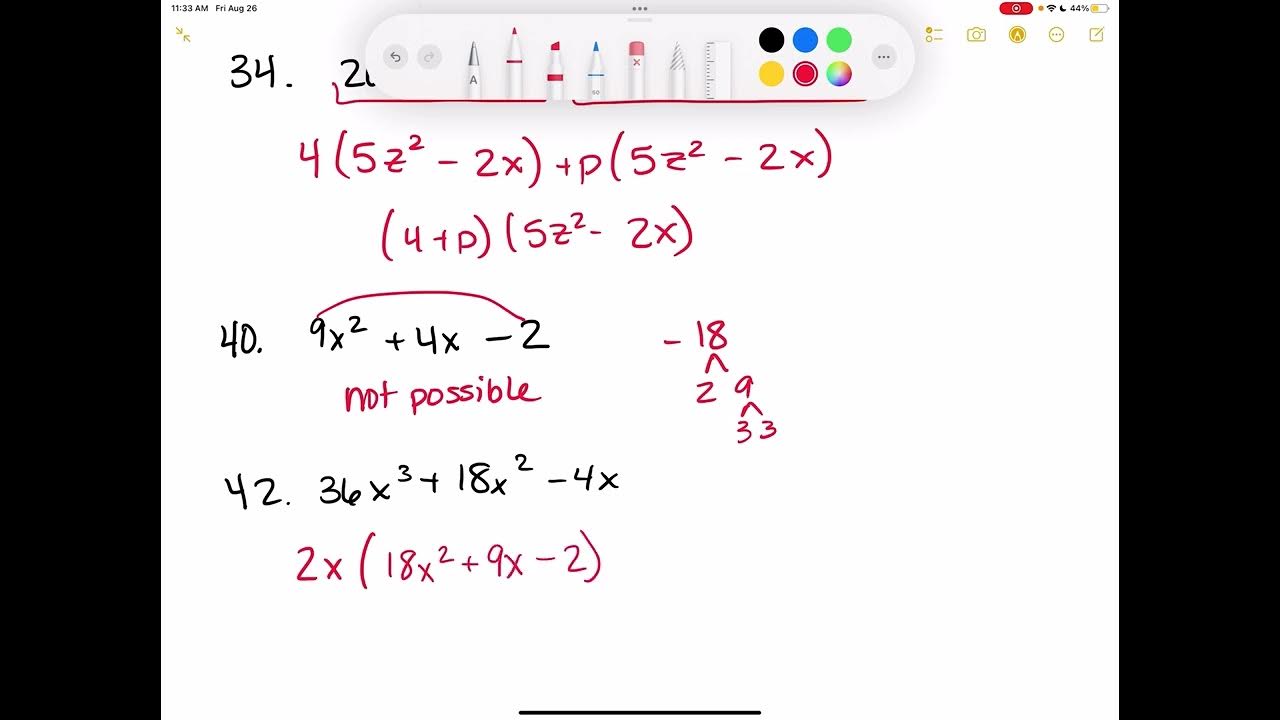 11:33 AM Fri Aug 26
44%
A
50
34.
4(5z² - 2x) + p(5z² - 2x)
(4+p)(5z² - 2x)
40. 9x² + 4x - 2
- 18
not possible
2 9
3 3
42. 36x³ + 18x² - 4x
2x(18x² + 9x - 2)